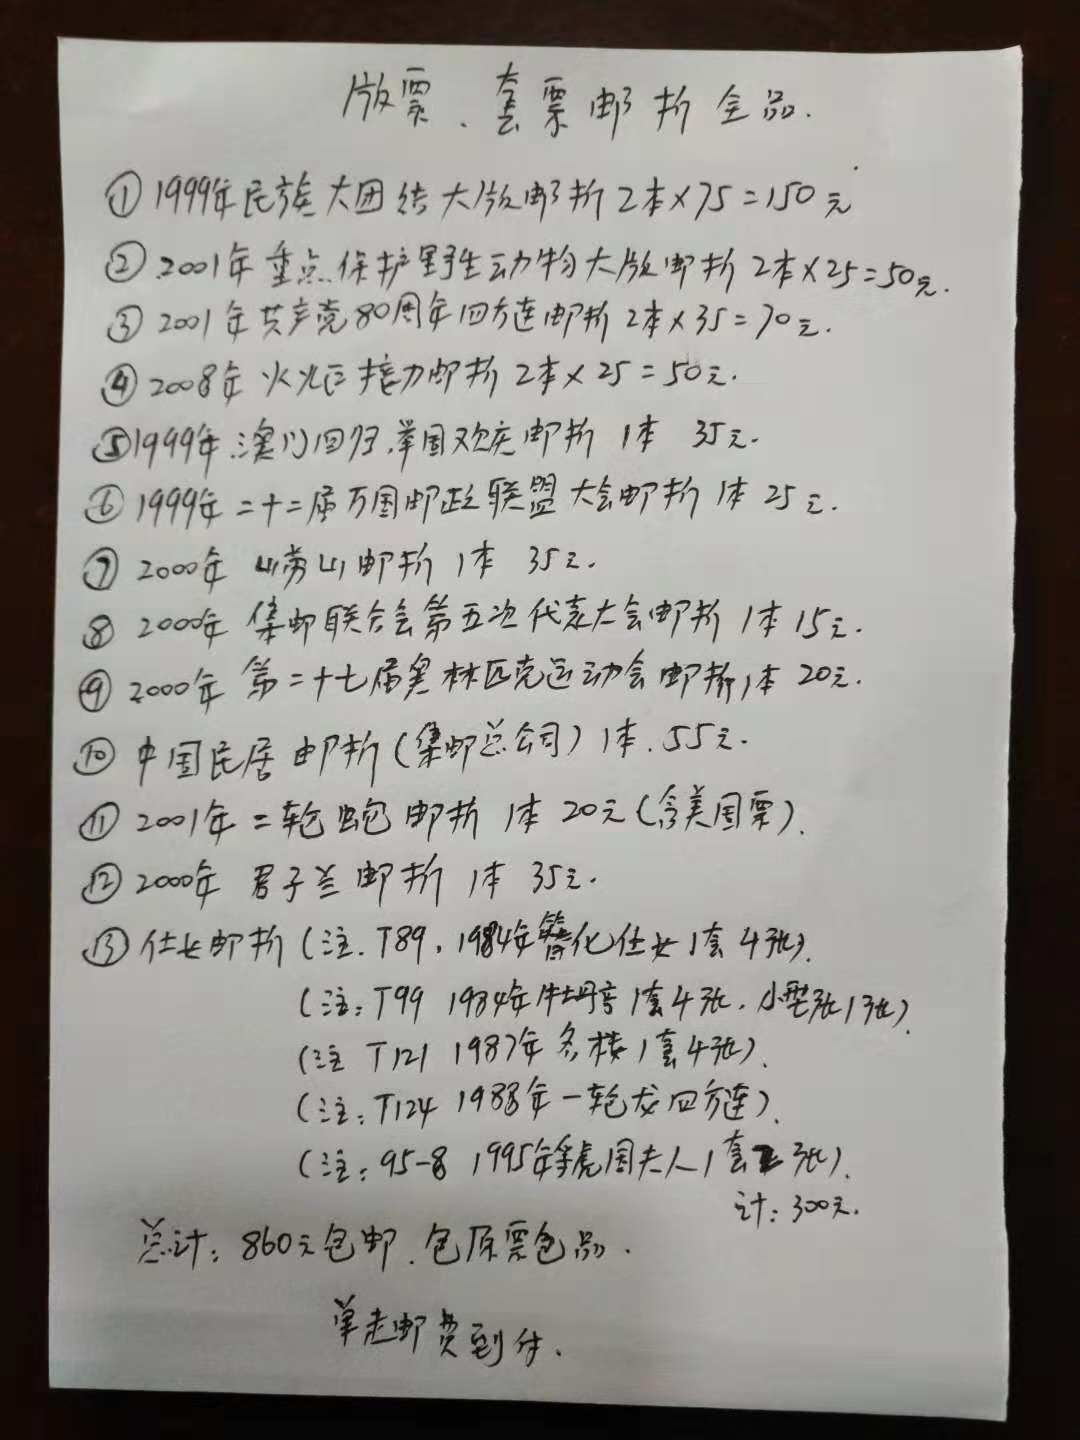 版票、套票邮折全品.
①1999年民族大团结大版邮折2本×75=150元
②2001年重点保护野生动物大版邮折2本×25=50元.
③2001年共产党80周年四方连邮折2本×35=70元.
④2008年火炬接力邮折2本×25=50元.
⑤1999年澳门回归.举国欢庆邮折1本 35元.
⑥1999年二十二届万国邮政联盟大会邮折1本25元.
⑦2000年崂山邮折1本 35元.
⑧2000年集邮联合会第五次代表大会邮折1本15元.
⑨2000年第二十七届奥林匹克运动会邮折1本20元.
⑩中国民居邮折(集邮总公司)1本.55元.
⑪2001年二轮蛇邮折1本20元(含美国票).
⑫2000年君子兰邮折1本35元.
⑬仕女邮折(注.T89,1984年簪花仕女1套4张).
(注:T99 1984年牡丹亭1套4张.小型张1张)
(注T121 1987年名楼1套4张).
(注:T124 1988年一轮龙四方连).
(注:95-8 1995年虢国夫人1套2张).
计:300元.
总计:860元包邮.包原票包品.
单走邮费到付.